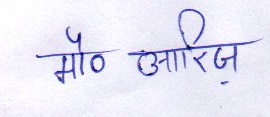 मौ० आरिज़